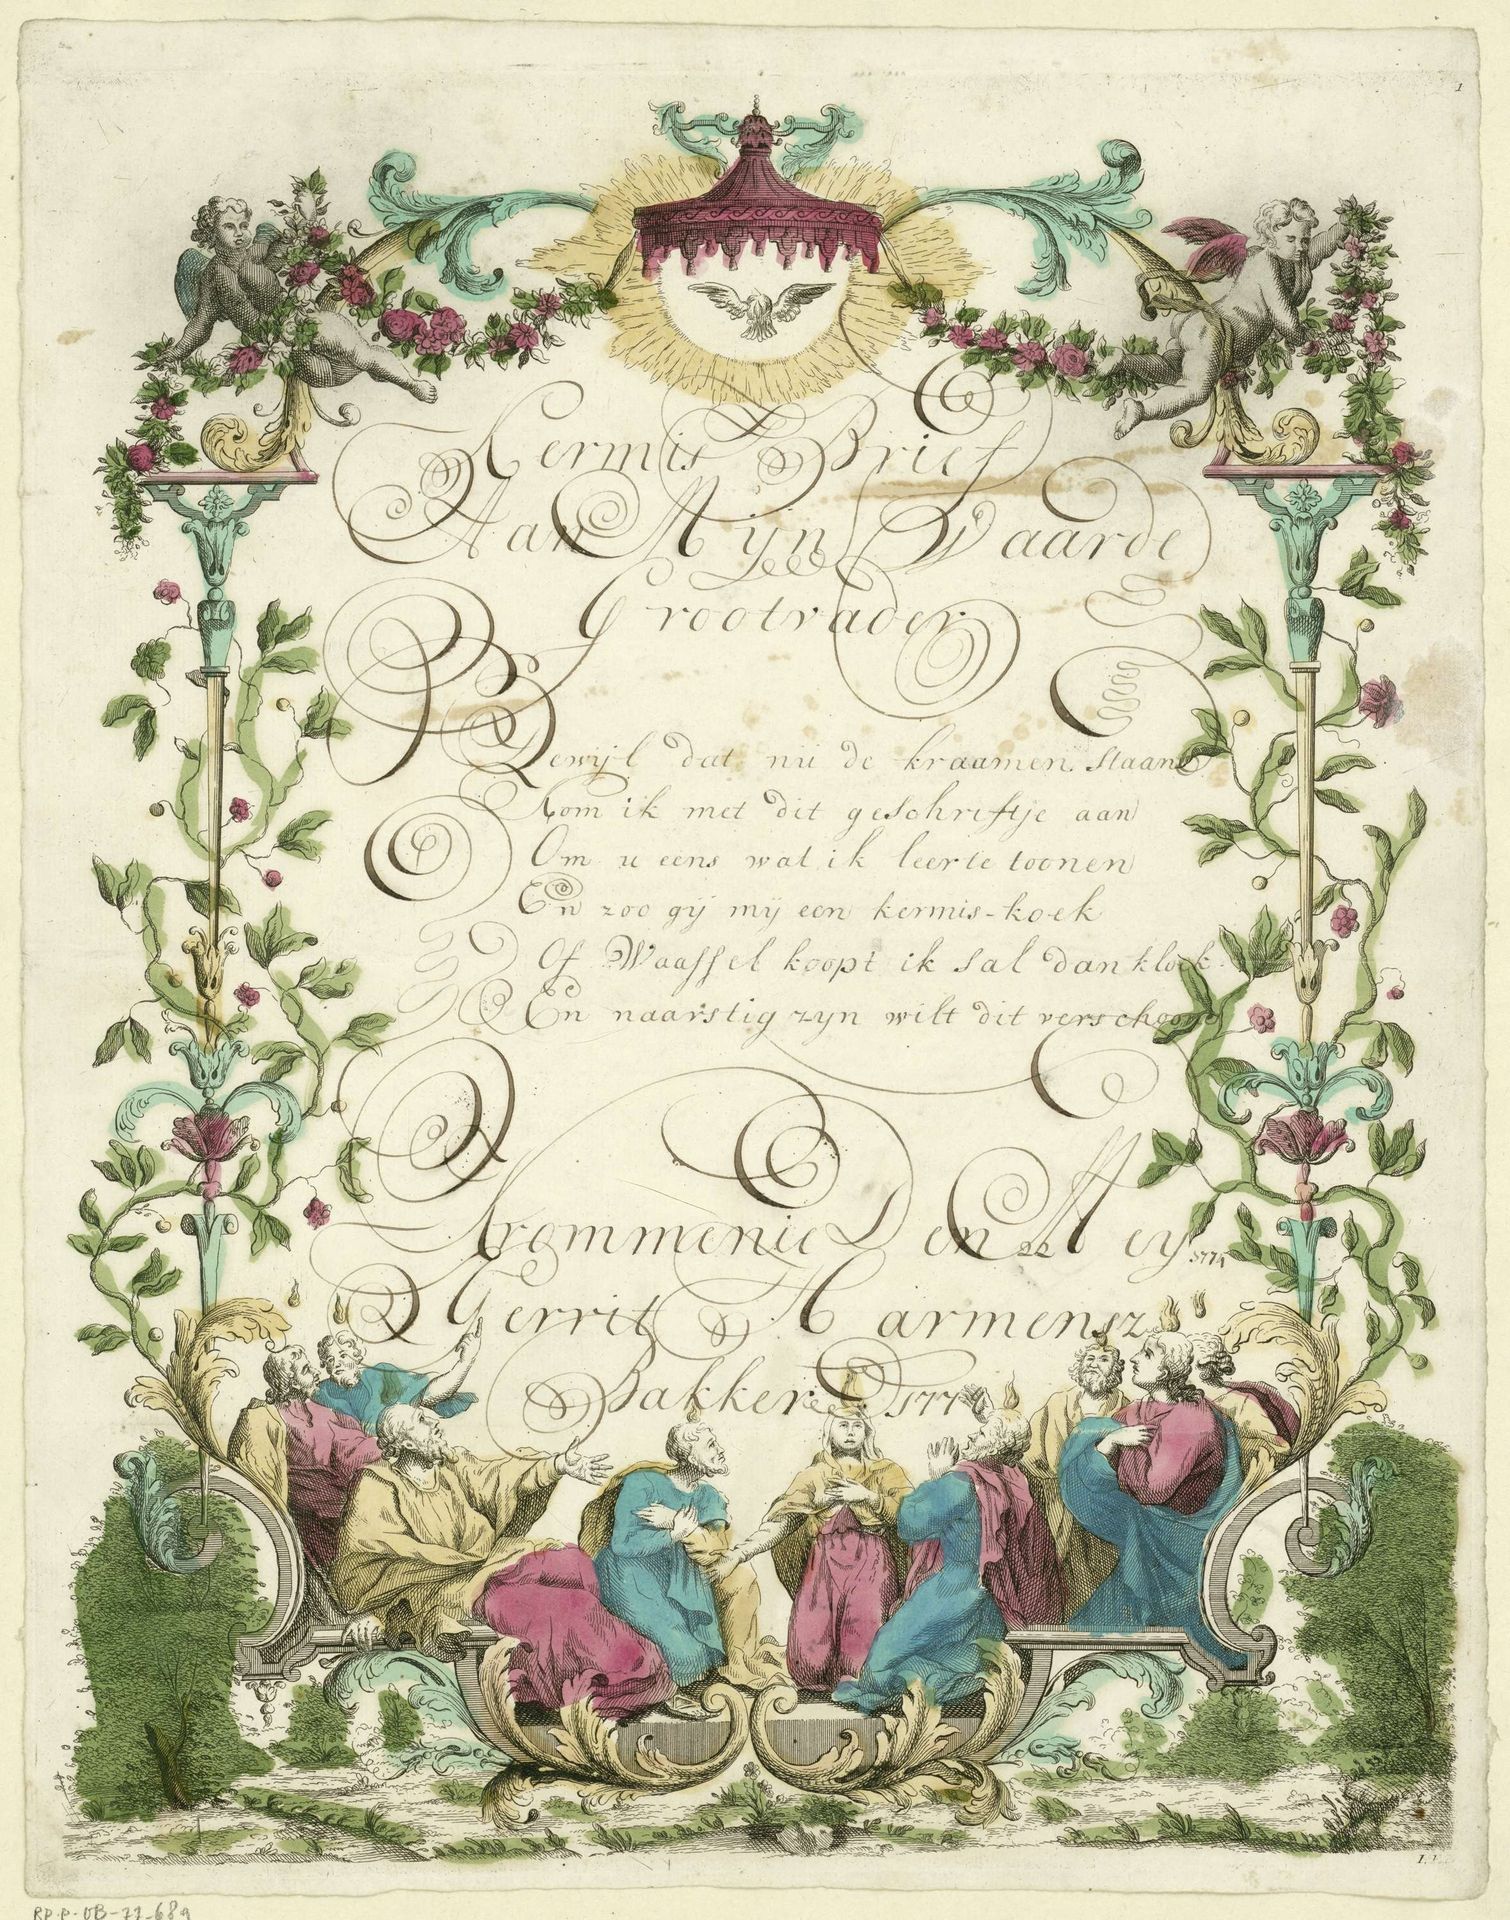 1
Kermis Brief
Aan Mijn Waarde
Grootvader
Dewijl dat nu de kraamen staan
Kom ik met dit geschriftje aan
Om u eens wat ik leerte toonen
En zoo gij mij een kermis-koek
Of Waaffel koopt ik sal dan kloek
En naarstig zyn wilt dit verschoonen
Krommenie Den 22 Mey 1774
Gerrit Harmensz
Bakker 177
RP-P-OB-77-689